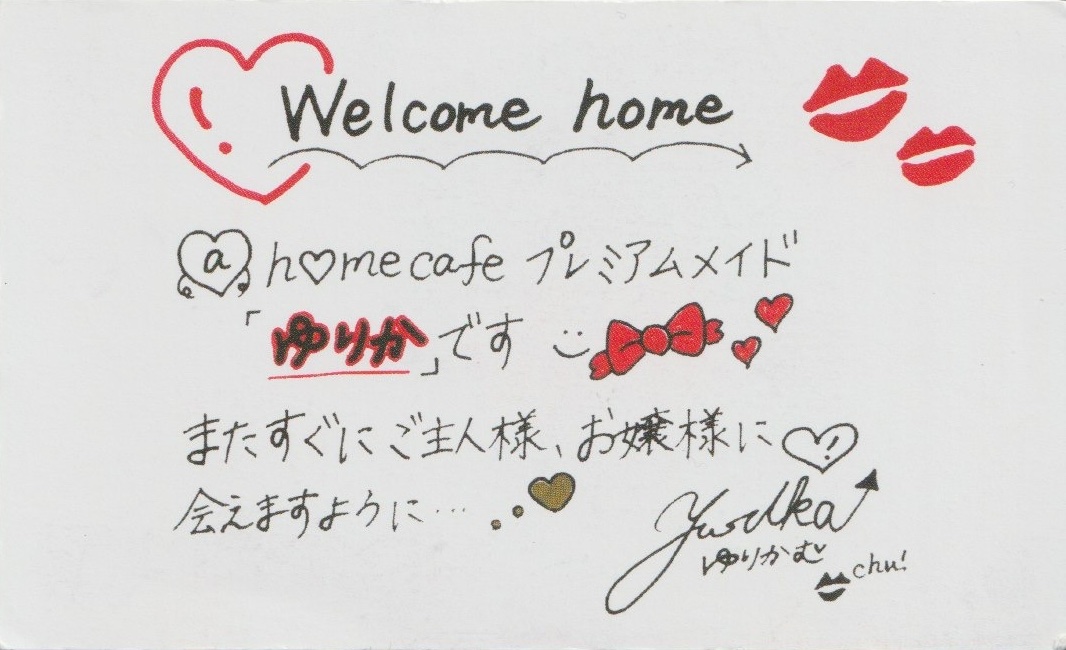 Welcome home
@h♡mecafe プレミアムメイド
「ゆりか」です
またすぐにご主人様、お嬢様に
会えますように…
Yurika
ゆりかむ
chu!